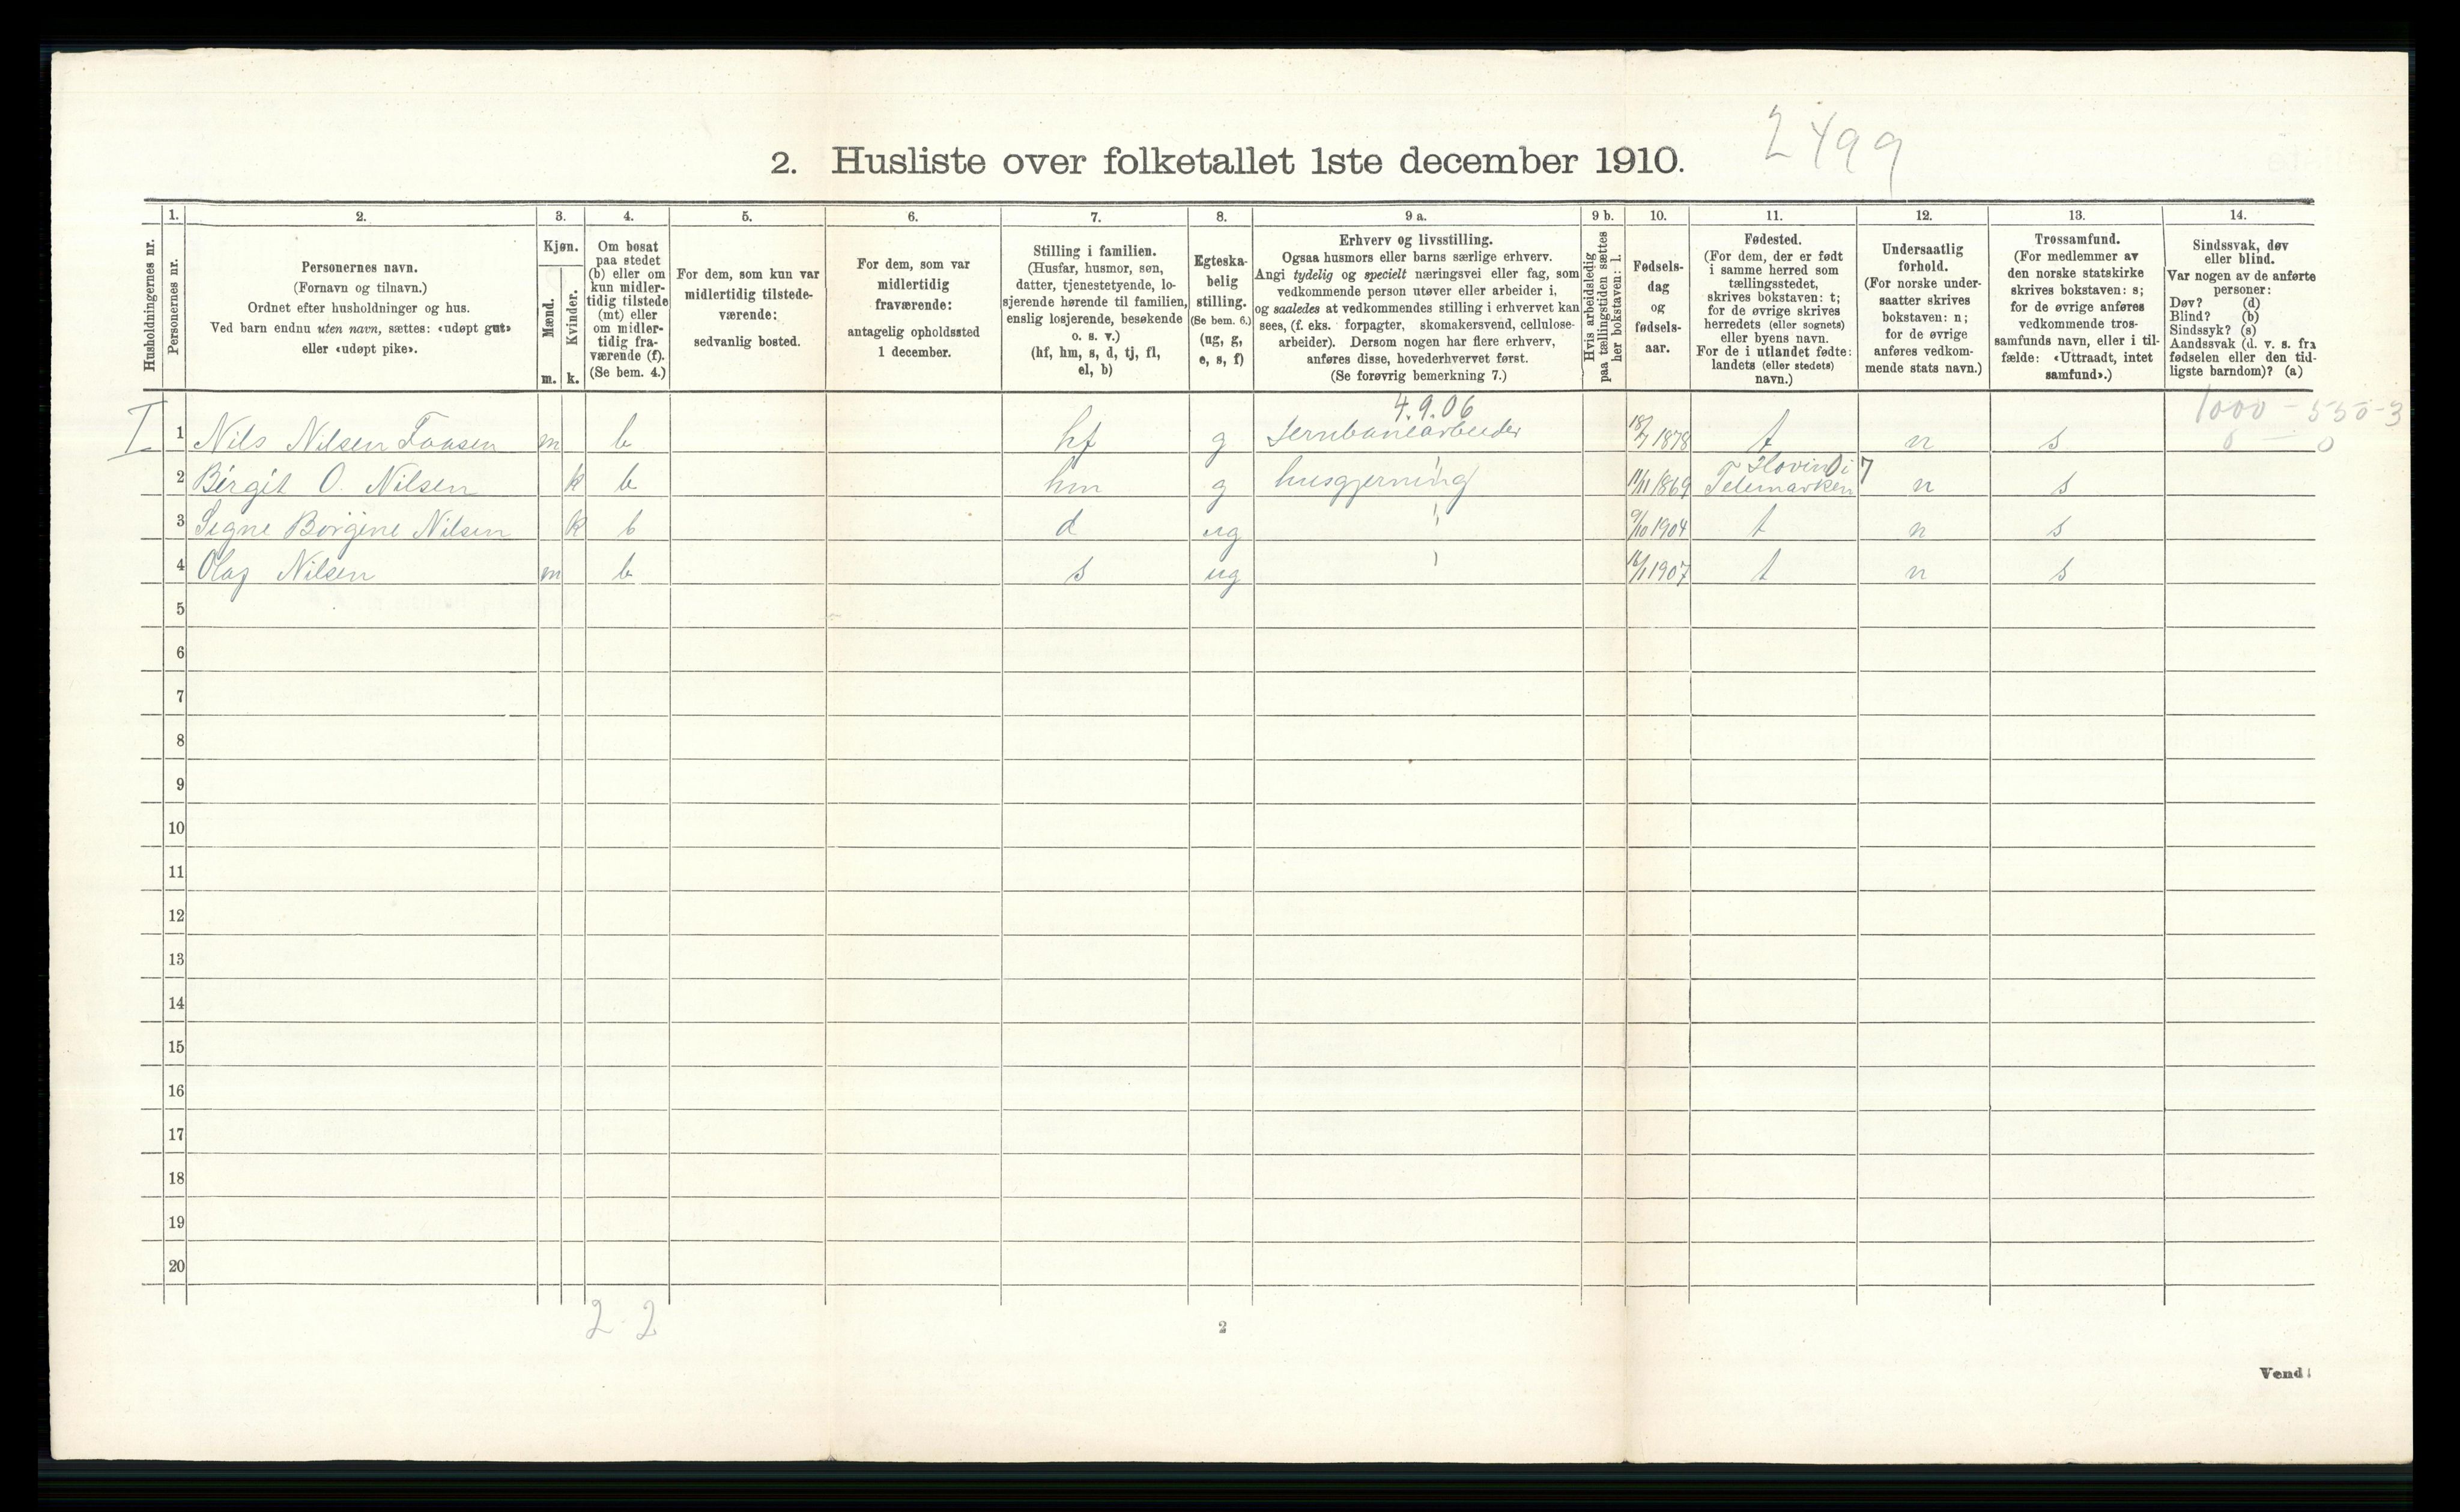 2499
2. Husliste over folketallet 1ste december 1910.
Husholdningernes nr.
1.
Personernes nr.
2.
Personernes navn.
(Fornavn og tilnavn.)
Ordnet efter husholdninger og hus.
Ved barn endnu uten navn, sættes: «udøpt gut»
eller «udøpt pike».
3.
Kjøn.
Mænd.
Kvinder.
m. k.
4.
Om bosat
paa stedet
(b) eller om
kun midler-
tidig tilstede
(mt) eller
om midler-
tidig fra-
værende (f).
(Se bem. 4.)
5.
For dem, som kun var
midlertidig tilstede-
værende:
sedvanlig bosted.
6.
For dem, som var
midlertidig
fraværende:
antagelig opholdssted
1 december.
7.
Stilling i familien.
(Husfar, husmor, søn,
datter, tjenestetyende, lo-
sjerende hørende til familien,
enslig losjerende, besøkende
o. s. v.)
(hf, hm, s, d, tj, fl,
el, b)
8.
Egteska-
belig
stilling.
(Se bem. 6.)
(ug, g,
e, s, f)
9 a.
Erhverv og livsstilling.
Ogsaa husmors eller barns særlige erhverv.
Angi tydelig og specielt næringsvei eller fag, som
vedkommende person utøver eller arbeider i,
og saaledes at vedkommendes stilling i erhvervet kan
sees, (f. eks. forpagter, skomakersvend, cellulose-
arbeider). Dersom nogen har flere erhverv,
anføres disse, hovederhvervet først.
(Se forøvrig bemerkning 7.)
9 b.
Hvis arbeidsledig
paa tællingstiden sættes
her bokstaven: l.
10.
Fødsels-
dag
og
fødsels-
aar.
11.
Fødested.
(For dem, der er født
i samme herred som
tællingsstedet,
skrives bokstaven: t;
for de øvrige skrives
herredets (eller sognets)
eller byens navn.
For de i utlandet fødte:
landets (eller stedets)
navn.)
12.
Undersaatlig
forhold.
(For norske under-
saatter skrives
bokstaven: n;
for de øvrige
anføres vedkom-
mende stats navn.)
13.
Trossamfund.
(For medlemmer av
den norske statskirke
skrives bokstaven: s;
for de øvrige anføres
vedkommende tros-
samfunds navn, eller i til-
fælde: «Uttraadt, intet
samfund».)
14.
Sindssvak, døv
eller blind.
Var nogen av de anførte
personer:
Døv? (d)
Blind? (b)
Sindssyk? (s)
Aandssvak (d. v. s. fra
fødselen eller den tid-
ligste barndom)? (a)
4.9.06
1000 - 550-3
0 - 0
I 1 Nils Nilsen Faasen m b hf g Jernbanearbeider 18/7 1878 t n s
Hovin i 7
2 Birgit O. Nilsen k b hm g husgjerning 11/11 1869 Telemarken n s
3 Signe Borgine Nilsen k b d ug 9/10 1904 t n s
4 Olaf Nilsen m b s ug 16/1 1907 t n s
5
6
7
8
9
10
11
12
13
14
15
16
17
18
19
20
2 2
2
Vend!